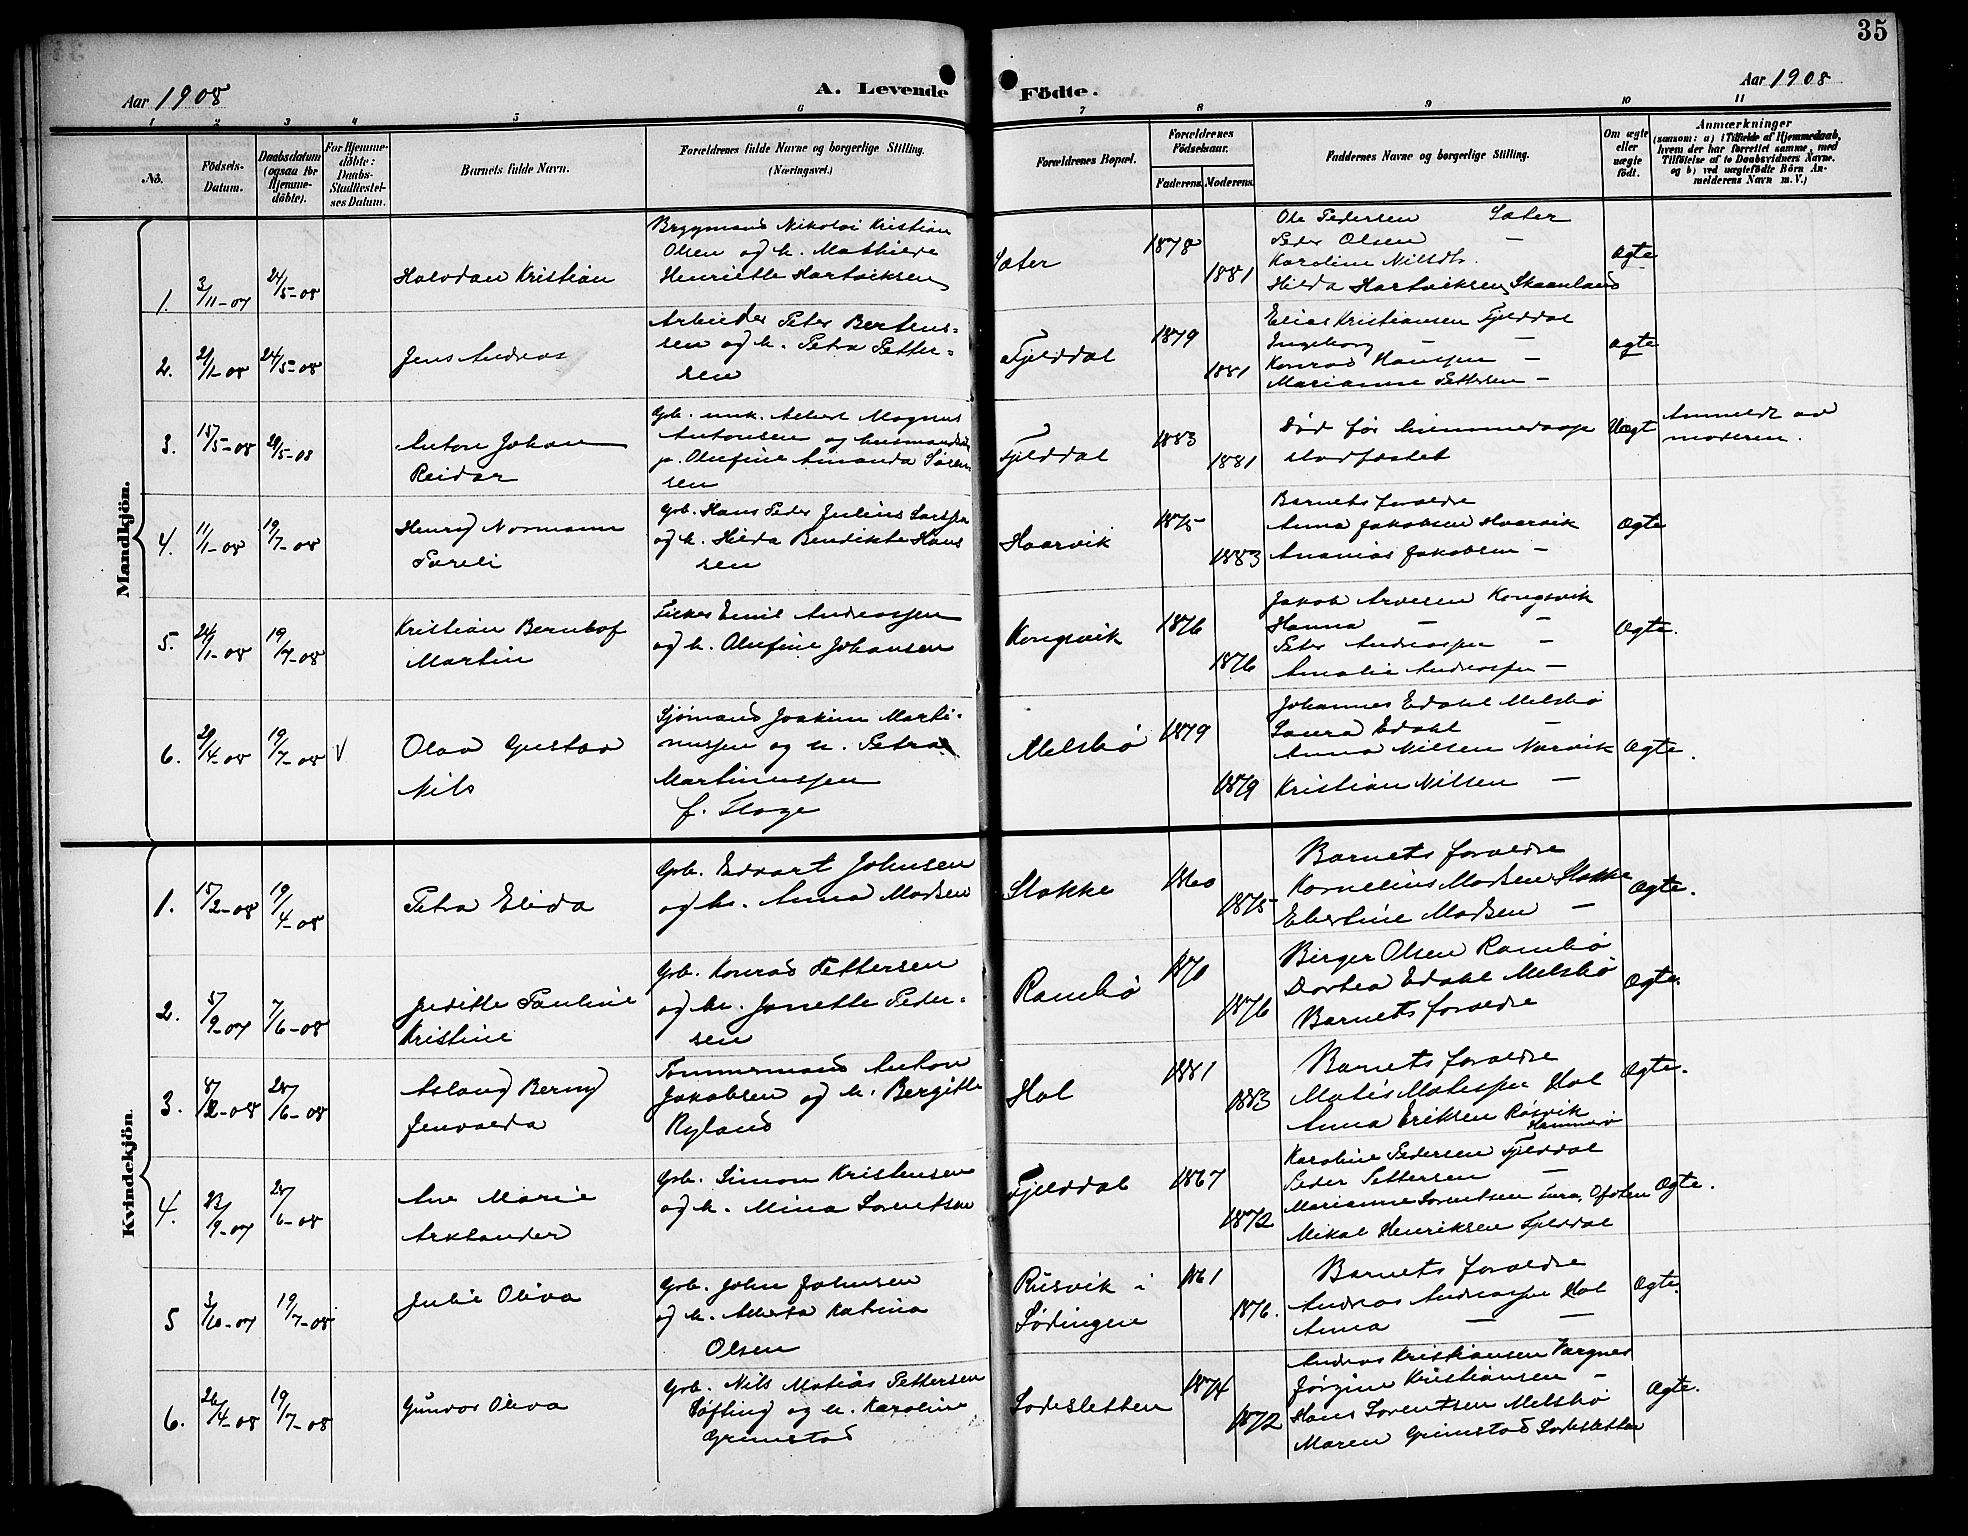 35
Aar 1908
A. Levende
Födte.
Aar 1908
1 2 3 4 5 6 7 8 9 10 11
No.
Födsels-
Datum.
Daabsdatum
(ogsaa for
Hjemme-
döbte).
For Hjemme-
döbte:
Daabs-
Stadfæstel-
ses Datum.
Barnets fulde Navn.
Forældrenes fulde Navne og borgerlige Stilling.
(Næringsvei.)
Forældrenes Bopæl.
Forældrenes
Födselsaar.
Faderens.
Moderens.
Faddernes Navne og borgerlige Stilling.
Om ægte
eller
uægte
födt.
Anmærkninger
(saasom: a) i Tilfælde af Hjemmedaab,
hvem der har forrettet samme, med
Tilföielse af to Daabsvidners Navne.
og b) ved uægtefödte Börn An-
melderens Navn m. V.)
Mandkjön.
1.
3/11-07
24/5-08
Halvdan Kristian
Bryggmand Nikolai Kristian
Olsen og h. Mathilde
Henriette Hartviksen
Sæter
1878
1881
Ole Pedersen Sæter
Peder Olsen —
Karoline Nilsdt.
Hilda Hartviksen, Skaanland
Ægte
2.
21/1-08
24/5-08
Jens Andreas
Arbeider Peter Bertens-
sen og h. Petra Petter-
sen
Fjelddal
1879
1881
Elias Kristiansen Fjelddal
Ingeborg — —
Konrad Hanssen —
Marianne Pettersen —
Ægte
3.
15/5-08
29/5-08
Anton Johan
Reidar
Gb. unk. Albert Magnus
Antonsen og husmandsd.
p. Olufine Amanda Søren-
sen
Fjelddal
1883
1881
Død før hjemmedaap
stadfæstet
Uægt
Anmeldt av
moderen.
4.
11/1-08
19/7-08
Henry Normann
Sareli
Gb. Hans Peder Julius Larssen
og h. Hilda Bendikte Han
sen
Haarvik
1875
1883
Barnets forældre
Anna Jakobsen Haarvik
Ananias Jakobsen —
Ægte
5.
24/1-08
19/7-08
Kristian Bernhof
Martin
Fisker Emil Andreassen
og h. Olufine Johansen
Kongsvik
1876
1876
Jakob Arvesen Kongsvik
Hanna — —
Peter Andreassen —
Amalie Andreassen —
Ægte.
6.
29/4-08
19/7-08
V
Olav Gustav
Nils
Sjømand Joakim Marti-
nussen og h. Petra
Martinussen
f. Hage
Melsbø
1879
1879
Johannes Edahl Melsbø
Laura Edahl —
Anna Nilsen Narvik
Kristian Nilsen —
Ægte.
Kvindekjön.
1.
15/2-08
19/4-08
Petra Elida
Gb. Edvart Johnsen
og h. Anna Madsen
Stakke
1860
1875
Barnets forældre
Kornelius Madsen Stakke
Ebertine Madsen —
Ægte.
2.
5/9-07
7/6-08
Juditte Pauline
Kristine
Gb. Konrad Pettersen
og h. Janette Peder-
sen
Rambø
1870
1876
Birger Olsen Rambø
Dortea Edahl Melsbø
Barnets forældre
Ægte.
3.
28/6-08
Aslaug Berny
Jenvalda
Tømmermand Anton
Jakobsen og h. Bergitte
Ryland
Hol
1881
1883
Barnets forældre
Matis Matissen Hol
Anna Eriksen Røsvik
Hammerø
Ægte.
4.
23/9-07
28/6-08
Ane Marie
Arklander
Gb. Simon Kristensen
og h. Mina Lorentsen
Fjelddal
1867
1872
Karoline Pedersen Fjelddal
Peder Pettersen —
Marianne Lorentsen Ofoten
Mikal Henriksen Fjelddal
Ægte.
5
3/10-07
19/7-08
Julie Oliva
Gb. John Johnsen
og h. Alberta Katrina
Olsen
Rusvik i
Lødingen
1861
1876.
Barnets forældre
Andreas Andreassen Hol
Anna — —
Ægte.
6.
26/4-08
19/7-08
Gunvor Oliva
Gb. Nils Matias Pettersen
Løfting og h. Karoline
Grimstad
Sodesletten
1874
1872
Andreas Kristiansen Vargnes
Jørgine Kristiansen —
Hans Lorentsen Melsbø
Maren Grimstad Sodesletten
Ægte.